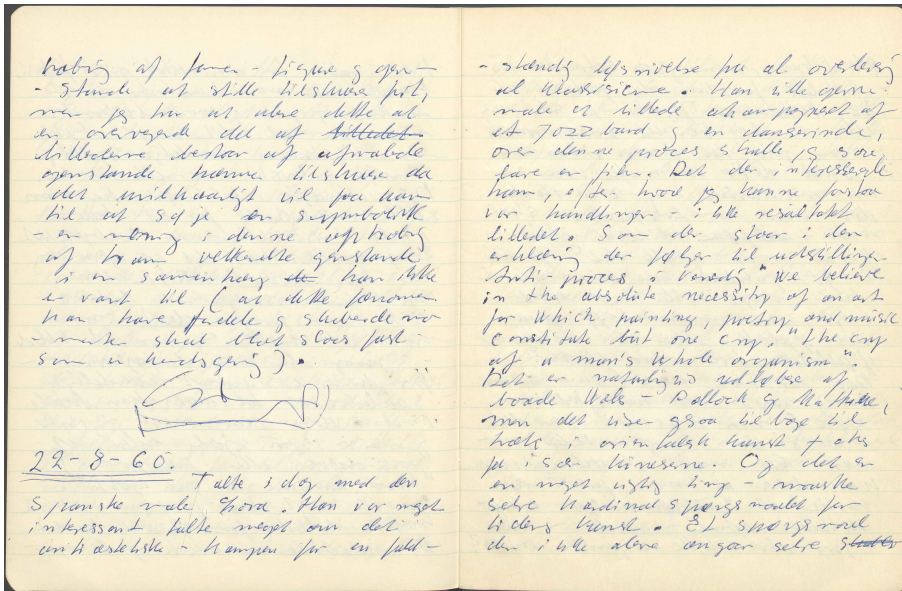 af former - figure og gen-
- stande at stille tilskuere frit,
men jeg tror at alene dette at
en overvejende del af tilledet
billederne bestaar af afmalede
genstande kunne tilskuere da
det uvilkaarligt vil faa ham
til at søje en symbolik
- en mening i denne
af ham velkendte genstande
i en samenhæng han ikke
er vant til ( at dette fænomen
kan have fordele og skabende mo
- menter skal blot slaaes fast
som en kendsgerning ) .
22-8-60.
Talte i dag med den
Spanske maler . Han var meget
interessant talte meget om det
antiæstetiske - kampen for en fuld-
- stændig løsrivelse fra al overlevering
al klassisisme . Han ville gerne
male et billede akompagneret af
et Jozz band og en danserinde,
over denne proces skulle jeg saa
lave en film . Det der interesserede
ham, efter hvad jeg kunne forstaa
var handlingen - ikke resultatet
billedet . Som der staar i den
erklæring der følger til udstillingen
Anti-proces i Venedig "We believe
in the absolute necessity of an art
for which painting, poetry and music
constitute but one cry." the cry
of a man's whole organism".
Det er naturligvis udløbere af
baade Wols - Pollock og Mathieu,
men det viser ogsaa tilbage til
træk i orientalsk kunst
paa især kineserne. Og det er
en meget vigtig ting - maaske
selve kardinal spørgsmaalet for
tidens kunst . Et spørgsmaal
der ikke alene angaar selve